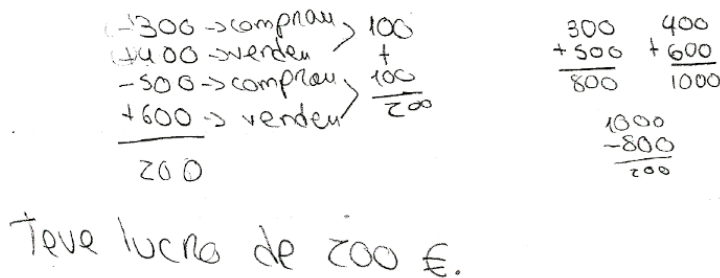 -300 -> comprou > 100
+400 -> vendeu +
-500 -> comprou > 100
+600 -> vendeu 200
200
300 400
+500 +600
800 1000
1000
-800
200
Teve lucro de 200 €.